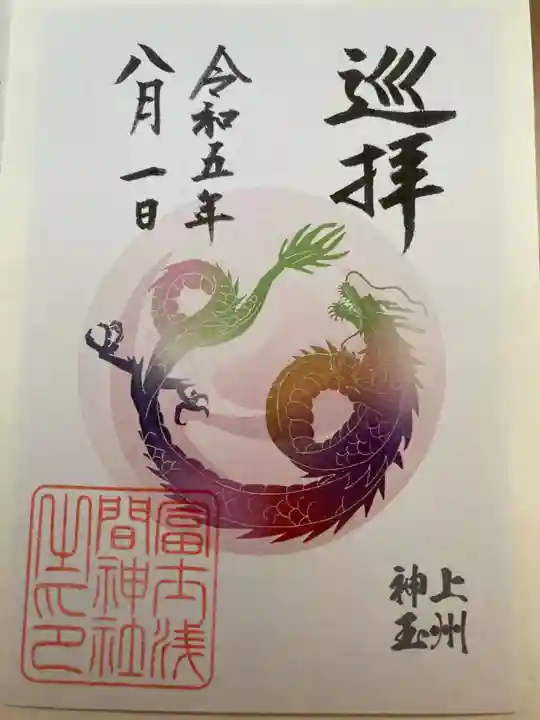 巡拝
令和五年
八月一日
上州
神玉
冨士浅
間神社
之印